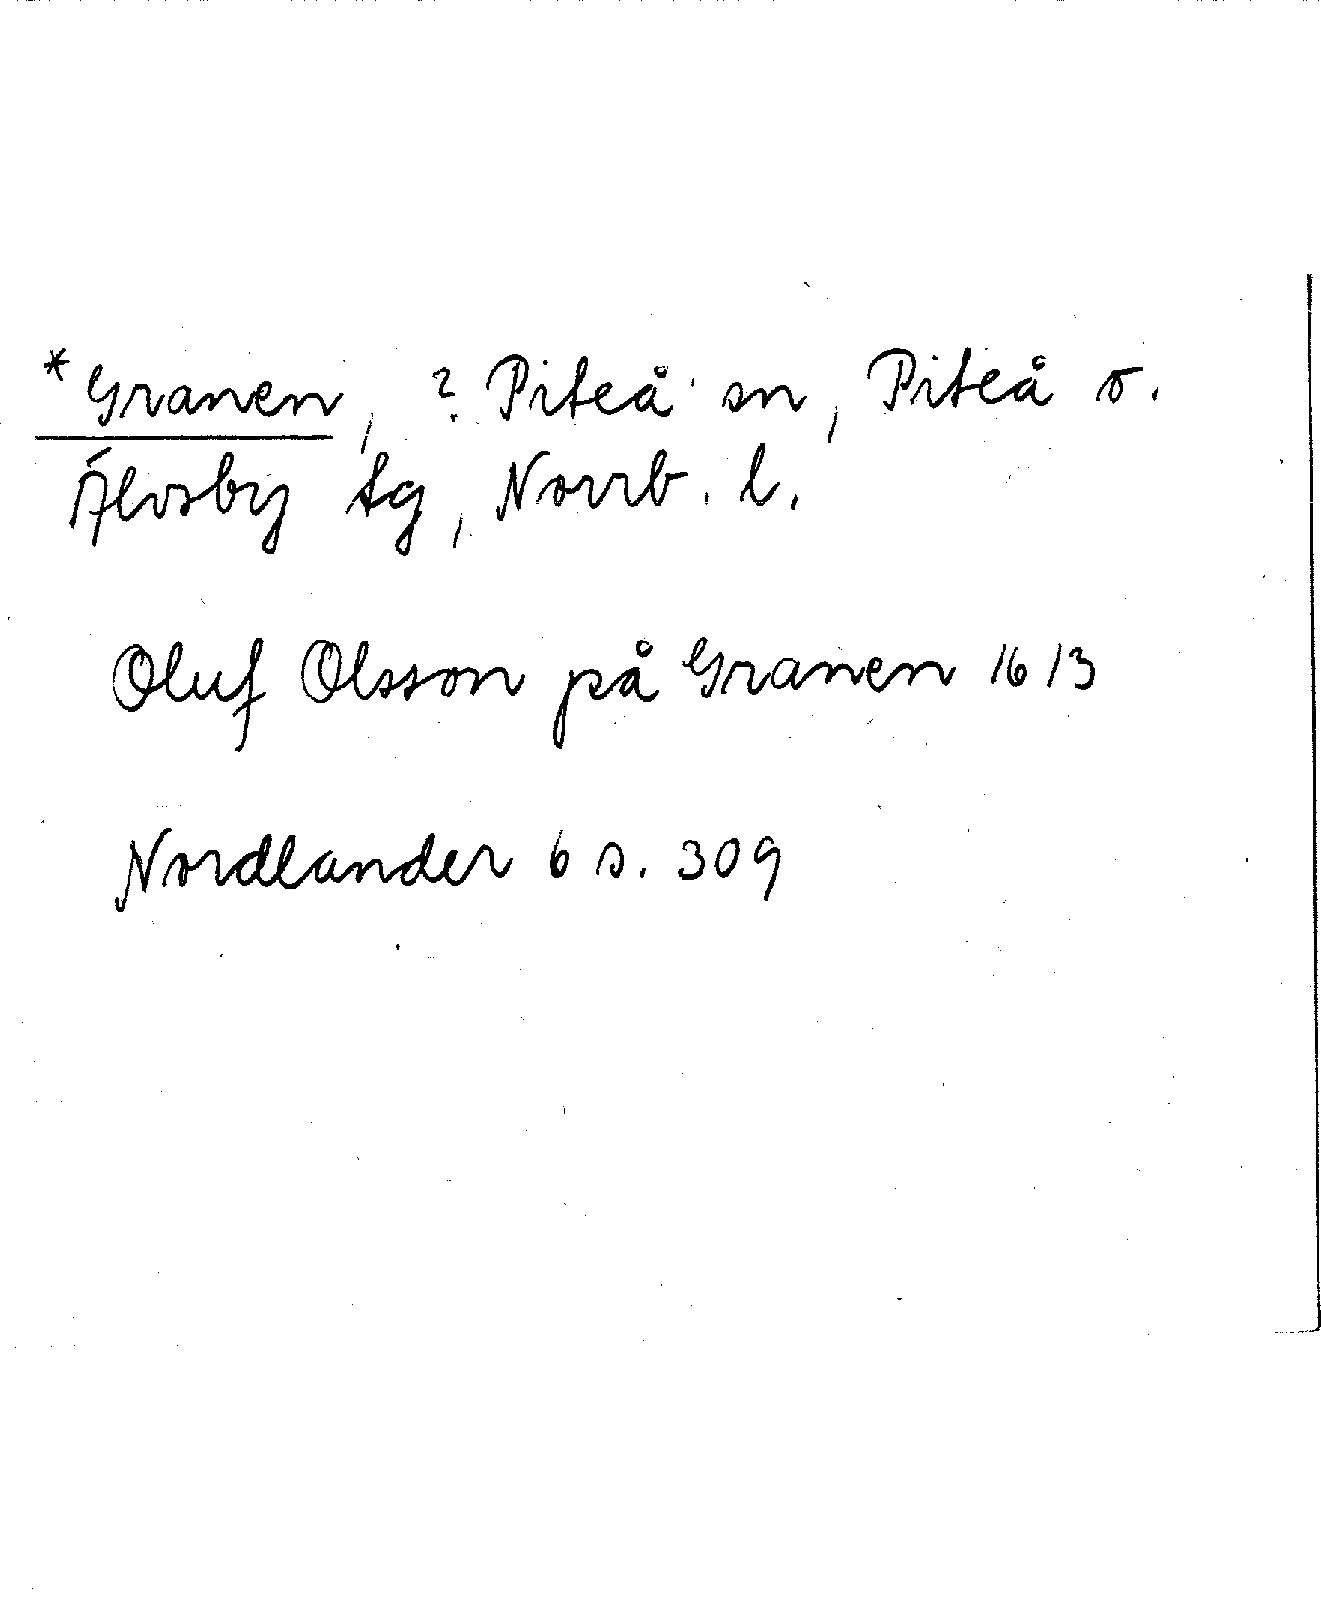 *Granen, ? Piteå sn, Piteå o.
Älvsby tg, Norrb. l.
Oluf Olsson på Granen 1613
Nordlander 6 s. 309